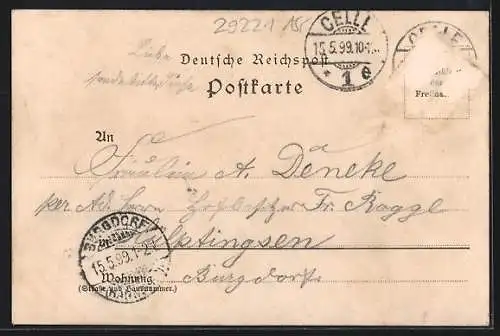 29221 15.-
CELLE
15.5.99.10-1
* 1 e
CELLE
Deutsche Reichspost
Postkarte
Liebe
Freima
An
Fräulein A. Deneke
per Ad. Herrn Hofbesitzer Fr. Ragge
BURGDORF
15.5.99.1-2
Wohnung
(Straße und Hausnummer.)
Burgdorf